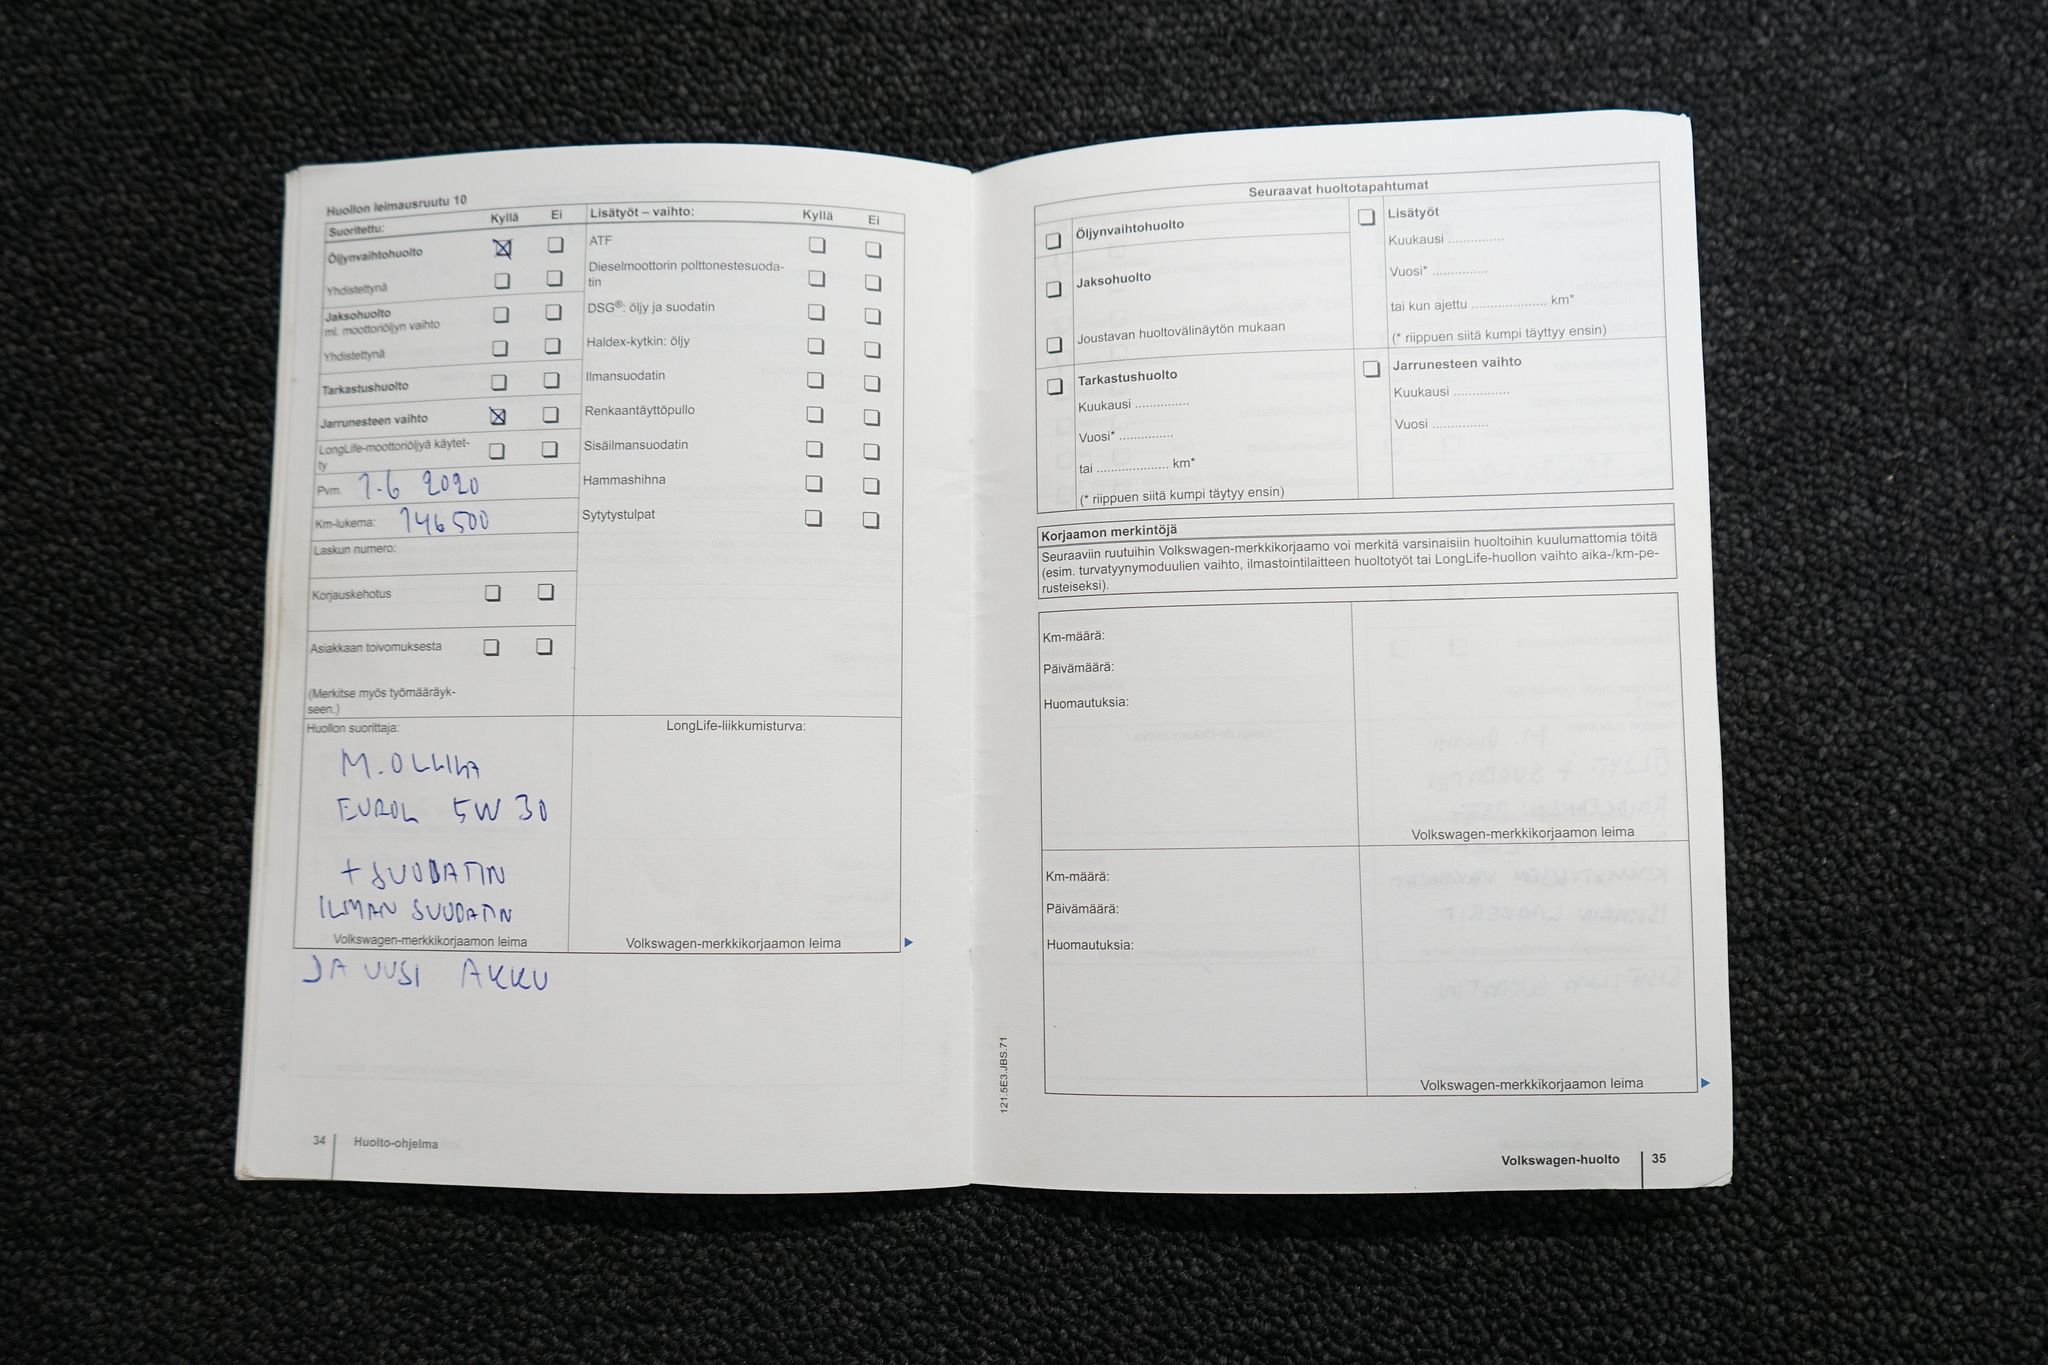 Huollon leimausruutu 10
Suoritettu: Kyllä Ei
Öljynvaihtohuolto
Yhdistettynä
Jaksohuolto
ml. moottoriöljyn vaihto
Yhdistettynä
Tarkastushuolto
Jarrunesteen vaihto
LongLife-moottoriöljyä käytet-
ty
Pvm. 1.6 2020
Km-lukema: 146 500
Laskun numero:
Korjauskehotus
Asiakkaan toivomuksesta
(Merkitse myös työmääräyk-
seen.)
Lisätyöt – vaihto: Kyllä Ei
ATF
Dieselmoottorin polttonestesuoda-
tin
DSG®: öljy ja suodatin
Haldex-kytkin: öljy
Ilmansuodatin
Renkaantäyttöpullo
Sisäilmansuodatin
Hammashihna
Sytytystulpat
Huollon suorittaja:
M. OLLILA
EUROL 5W 30
+ SUODATIN
ILMAN SUODATIN
Volkswagen-merkkikorjaamon leima
JA UUSI AKKU
LongLife-liikkumisturva:
Volkswagen-merkkikorjaamon leima
34 Huolto-ohjelma
Seuraavat huoltotapahtumat
Öljynvaihtohuolto
Jaksohuolto
Joustavan huoltovälinäytön mukaan
Tarkastushuolto
Kuukausi ...............
Vuosi* ...............
tai .................... km*
(* riippuen siitä kumpi täytyy ensin)
Lisätyöt
Kuukausi ...............
Vuosi* ...............
tai kun ajettu .................... km*
(* riippuen siitä kumpi täyttyy ensin)
Jarrunesteen vaihto
Kuukausi ...............
Vuosi ...............
Korjaamon merkintöjä
Seuraaviin ruutuihin Volkswagen-merkkikorjaamo voi merkitä varsinaisiin huoltoihin kuulumattomia töitä
(esim. turvatyynymoduulien vaihto, ilmastointilaitteen huoltotyöt tai LongLife-huollon vaihto aika-/km-pe-
rusteiseksi).
Km-määrä:
Päivämäärä:
Huomautuksia:
Volkswagen-merkkikorjaamon leima
Km-määrä:
Päivämäärä:
Huomautuksia:
Volkswagen-merkkikorjaamon leima
121.5E3.JBS.71
Volkswagen-huolto 35